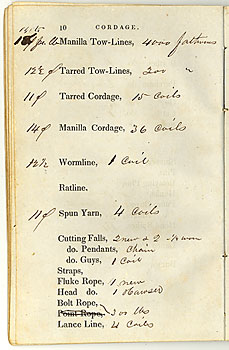 10 CORDAGE.
Manilla Tow-Lines, 4000 fathoms
Tarred Tow-Lines, 200 "
11 Tarred Cordage, 15 Coils
14 Manilla Cordage, 36 Coils
12½ Wormline, 1 Coil
Ratline.
11 Spun Yarn, 4 Coils
Cutting Falls, 2 new & 2 worn
do. Pendants, Chain
do. Guys, 1 Coil
Straps,
Fluke Rope, 1 new
Head do. 1 Hawser
Bolt Rope,
Point Rope, 300 lbs
Lance Line, 4 Coils